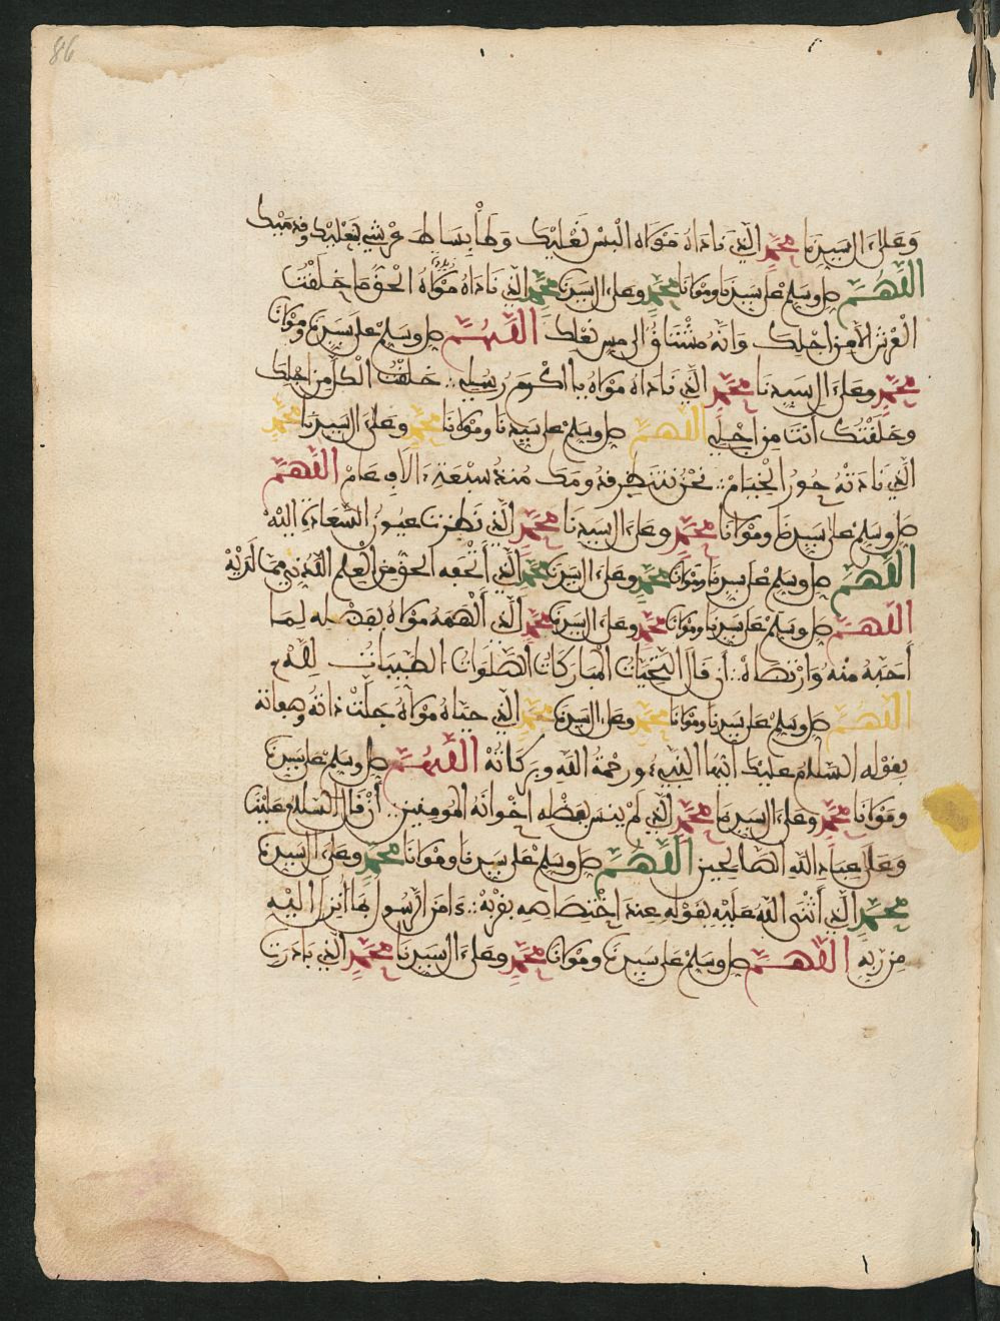 86
وَعَلَىٰ ءَالِ سَيِّدِنَا مُحَمَّدٍ الَّذِي نَادَاهُ مَوْلَاهُ الْبَسْ نَعْلَيْكَ وَطَأْ بِسَاطَ عَرْشِي بِنَعْلَيْكَ وقدميك
اللَّهُمَّ صل وسلم على سيدنا ومولانا محمد وعلى ءال سيدنا محمد الذي ناداه مولاه الحق ما خلقت
الْعَرْشَ إلا من اجلك وانه مشتاق الى مس نعلك اللهم صل وسلم على سيدنا ومولانا
محمد وعلى ءال سيدنا محمد الذي ناداه مولاه يا اكرم رسله خلقت الكل من اجلك
وخلقتك أنت من اجلي اللهم صل وسلم على سيدنا ومولانا محمد وعلى ءال سيدنا محمد
الذي نادته حور الخيام نحن ننتظر قدومك منذ سبعة ءالاف عام اللهم
صل وسلم على سيدنا ومولانا محمد وعلى ءال سيدنا محمد الذي نظرت عيون السعادة اليه
اللهم صل وسلم على سيدنا ومولانا محمد وعلى ءال سيدنا محمد الذي أتحفه الحق من العلم اللدني مما لديه
اللهم صل وسلم على سيدنا ومولانا محمد وعلى ءال سيدنا محمد الذي ألهمه مولاه بفضله لما
أحبه منه وارتضاه أن قال التحيات المباركات الصلوات الطيبات لله
اللهم صل وسلم على سيدنا ومولانا محمد وعلى ءال سيدنا محمد الذي حياه مولاه جلت ذاته وصفاته
بقوله السلام عليك ايها النبيء ورحمة الله وبركاته اللهم صل وسلم على سيدنا
ومولانا محمد وعلى ءال سيدنا محمد الذي لم ينس بفضله اخوانه المومنين أن قال السلام علينا
وعلى عباد الله الصالحين اللهم صل وسلم على سيدنا ومولانا محمد وعلى ءال سيدنا
محمد الذي أثنى الله عليه بقوله عند اختصاصه بقربه ءامن الرسول بما أنزل اليه
من ربه اللهم صل وسلم على سيدنا ومولانا محمد وعلى ءال سيدنا محمد الذي بادرت